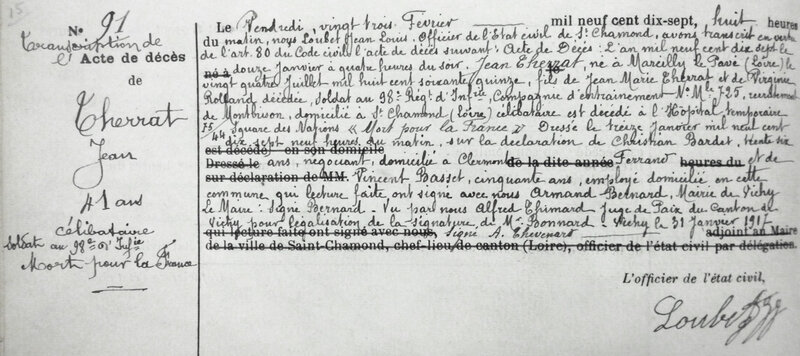 15
N.° 91
Transcription de
l'Acte de décès
de
Therrat
Jean
41 ans
Célibataire
Soldat au 98e d'Infie
Mort pour la France
Le Vendredi, vingt trois Février mil neuf cent dix-sept, huit heures
du matin, nous Loubet Jean Louis, Officier de l'Etat civil de St Chamond, avons transcrit en vertu
de l'art. 80 du Code civil l'acte de décès suivant: Acte de Décès: L'an mil neuf cent dix sept le
né à douze Janvier à quatre heures du soir, Jean Therrat, né à Marcilly le Pavé (Loire) le
vingt quatre Juillet mil huit cent soixante quinze, fils de Jean Marie Therrat et de Virginie
Rolland décédée, Soldat au 98e Régt d'Infie, Compagnie d'entrainement No Mle 725, recrutement
de Montbrison, domicilié à St Chamond (Loire) célibataire est décédé à l'Hôpital temporaire
No 44 Square des Nations « Mort pour la France » Dressé le treize Janvier mil neuf cent
dix sept neuf heures du matin, sur la déclaration de Christian Bardet, trente six
est décédé en son domicile
Dressé le ans, négociant, domicilié à Clermont de la dite année Ferrand heures du et de
sur déclaration de MM. Vincent Basset, cinquante ans, employé domicilié en cette
commune qui lecture faite ont signé avec nous Armand Bernard, Mairie de Vichy
Le Maire: Signé Bernard - Vu par nous Alfred Juge de Paix du Canton de
Vichy pour légalisation de la Signature de Mr Bonnard - Vichy le 31 Janvier 1917
qui lecture faite ont signé avec nous, Signé A. Thevenard adjoint au Maire
de la ville de Saint-Chamond, chef-lieu de canton (Loire), officier de l'état civil par délégation.
L'officier de l'état civil,
Loubet